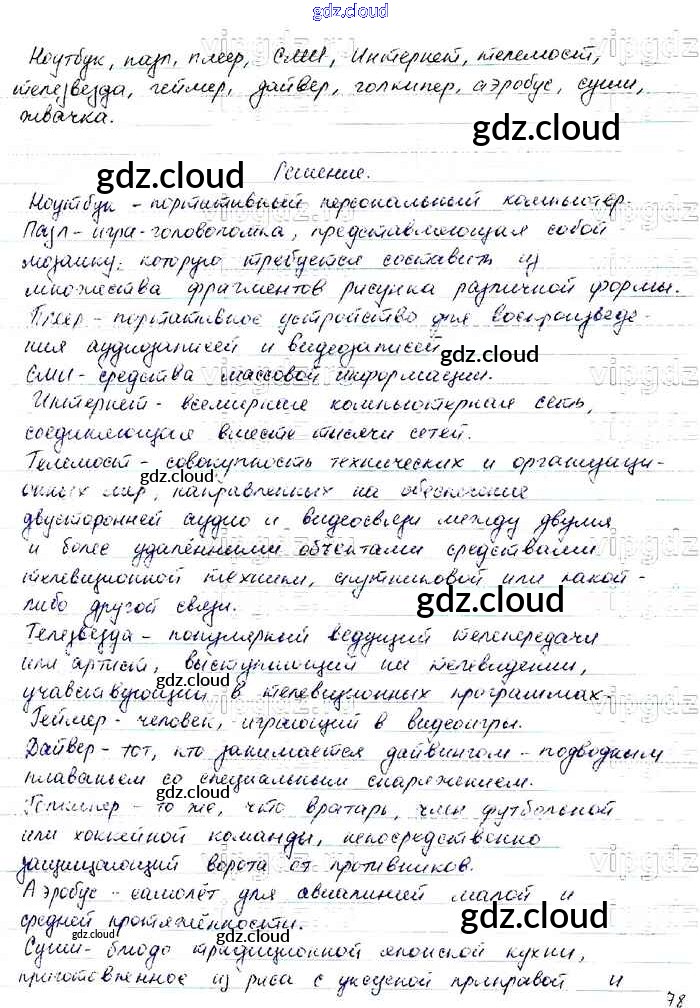 gdz.cloud
Ноутбук, пазл, плеер, СМИ, Интернет, телемост,
телезвезда, геймер, дайвер, голкипер, аэробус, суши,
жвачка.
gdz.cloud
gdz.cloud
Решение.
Ноутбук - портативный персональный компьютер.
Пазл - игра-головоломка, представляющая собой
мозаику, которую требуется составить из
множества фрагментов рисунка различной формы.
Плеер - портативное устройство для воспроизведе-
ния аудиозаписей и видеозаписей
gdz.cloud
СМИ - средства массовой информации.
Интернет - всемирная компьютерная сеть,
соединяющая вместе тысячи сетей.
Телемост - совокупность технических и организаци-
онных мер, направленных на обеспечение
gdz.cloud
двусторонней аудио и видеосвязи между двумя
и более удалёнными объектами средствами
телевизионной техники, спутниковой или какой-
либо другой связи.
gdz.cloud
Телезвезда - популярный ведущий телепередачи
или артист, выступающий на телевидении,
gdz.cloud
учавствующий в телевизионных программах.
Геймер - человек, играющий в видеоигры.
Дайвер - тот, кто занимается дайвингом - подводным
плаваньем со специальным снаряжением.
gdz.cloud
Голкипер - то же, что вратарь, член футбольной
или хоккейной команды, непосредственно
защищающий ворота от противников.
Аэробус - самолёт для авиалиний малой и
средней протяжённости.
gdz.cloud
gdz.cloud
Суши - блюдо традиционной японской кухни,
приготовленное из риса с уксусной приправой и
78